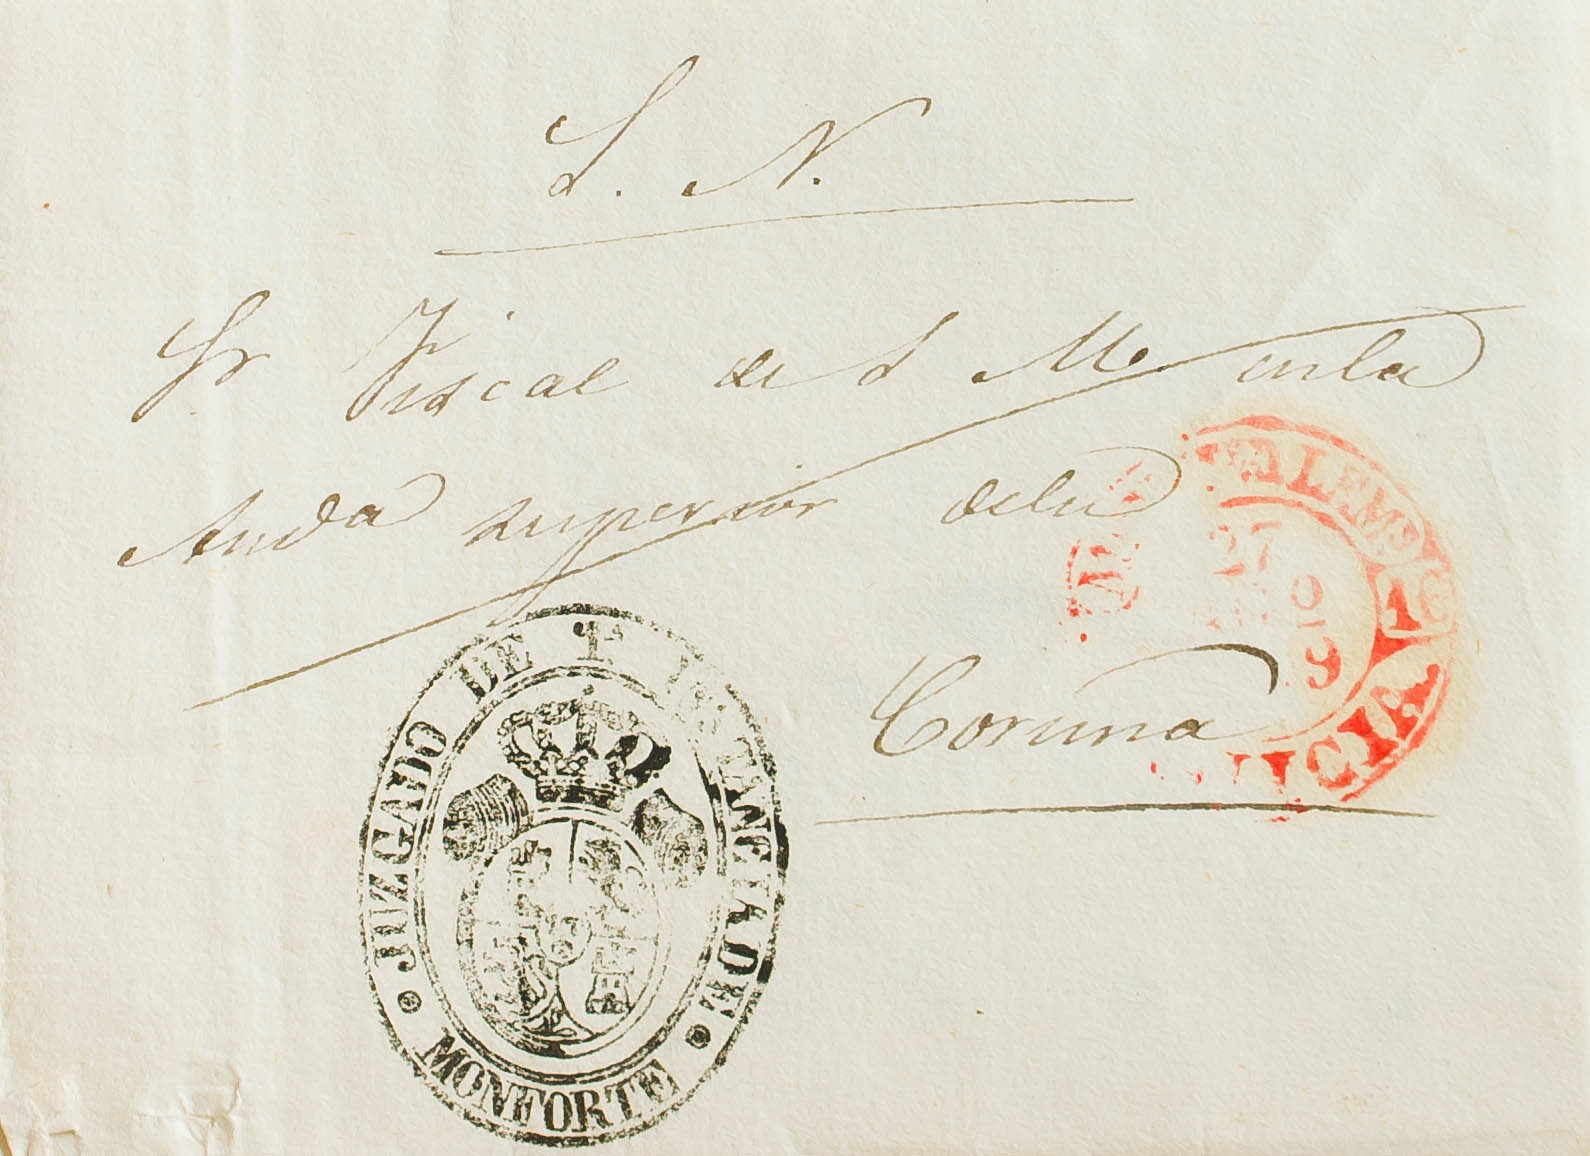 S. N.
Sr Fiscal de S M. en la
Auda superior de la
Coruña
JUZGADO DE 1ª INSTANCIA DE
MONFORTE
27
10